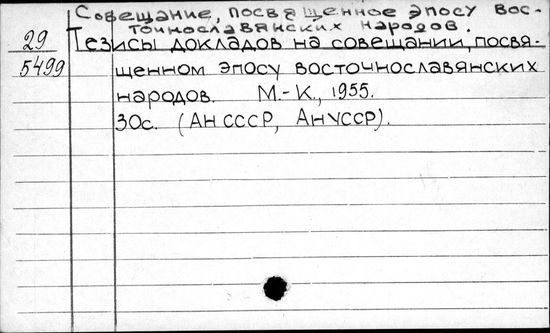 Совещание, посвященное эпосу вос-
точнославянских народов.
29
5499
Тезисы докладов на совещании, посвя-
щенном эпосу восточнославянских
народов. М.-К., 1955.
30с. (АН СССР, АнУССР).